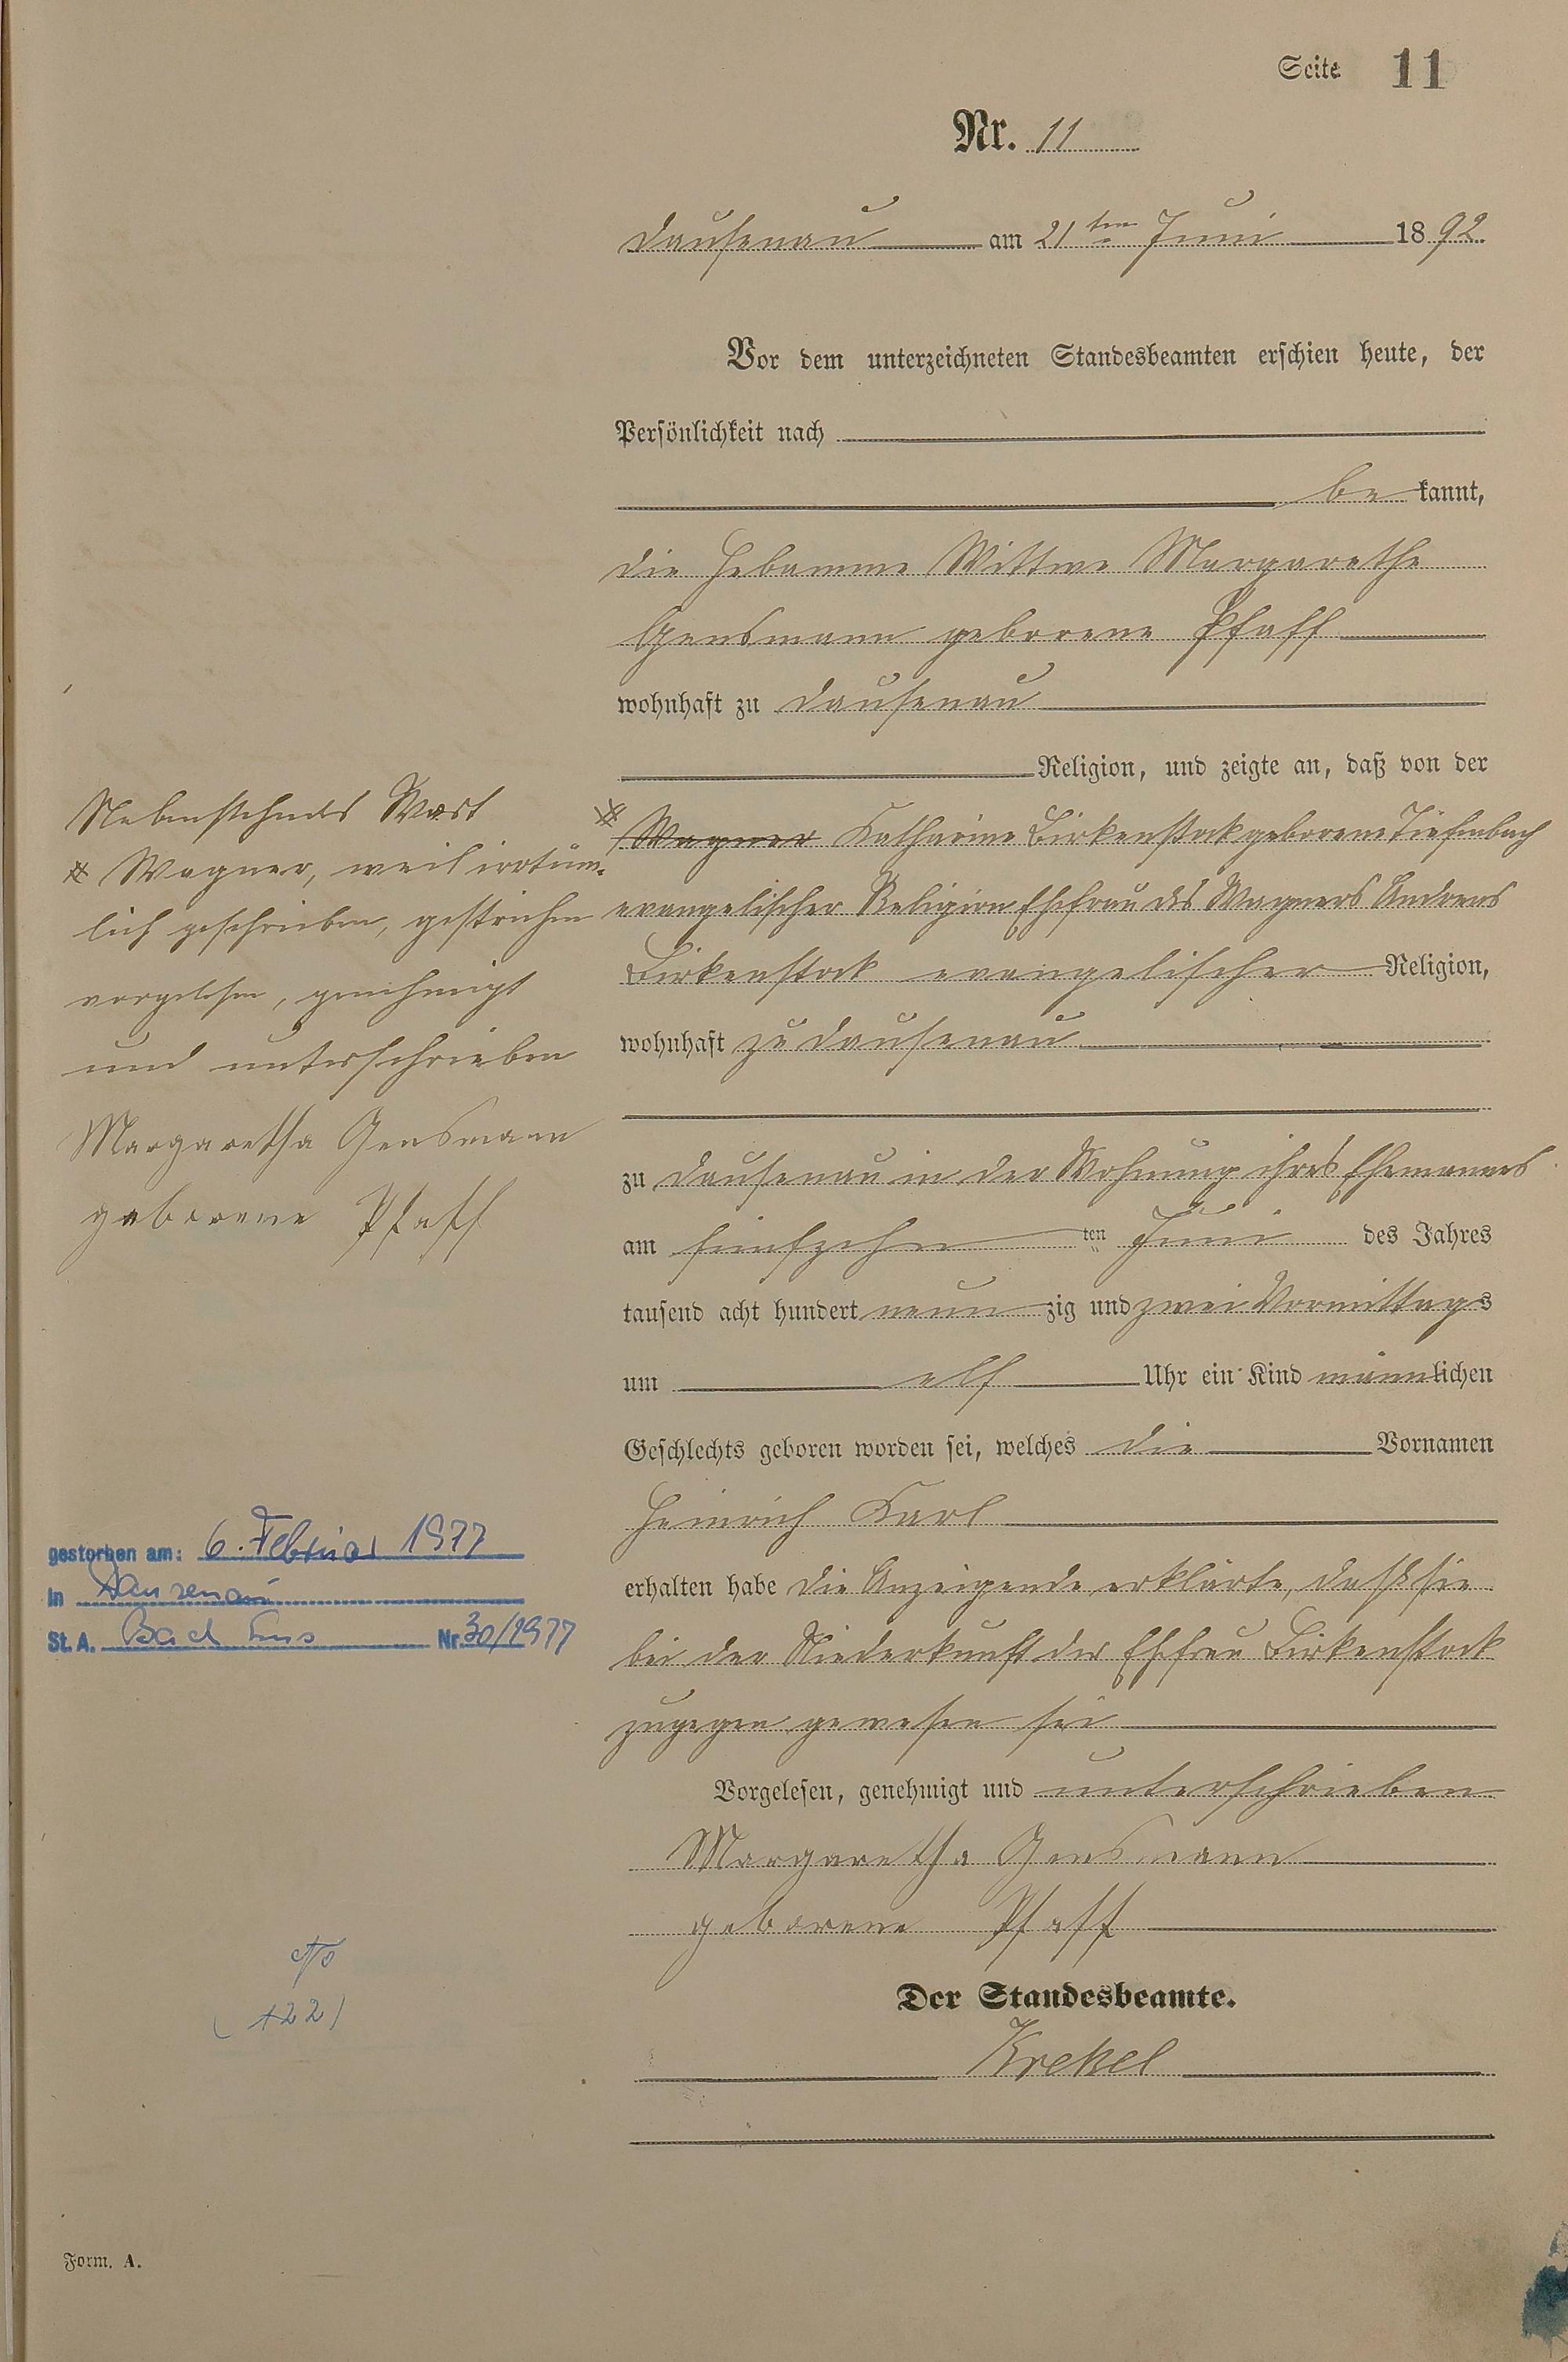 Seite 11
Nr. 11
Dausenau am 21ten Juni 1892.
Vor dem unterzeichneten Standesbeamten erschien heute, der
Persönlichkeit nach
be kannt,
die Hebamme Wittwe Margarethe
Gensmann geborene Pfaff
wohnhaft zu Dausenau
Religion, und zeigte an, daß von der
Wagner Katharine Birkenstock geborene Tiefenbach
evangelischer Religion Ehefrau des Wagners Andreas
Birkenstock evangelischer Religion,
wohnhaft zu Dausenau
zu Dausenau in der Wohnung ihres Ehemannes
am fünfzehn ten Juni des Jahres
tausend acht hundert neun zig und zwei Vormittags
um elf Uhr ein Kind männlichen
Geschlechts geboren worden sei, welches die Vornamen
Heinrich Karl
erhalten habe die Anzeigende erklärte, daß sie
bei der Niederkunft der Ehefrau Birkenstock
zugegen gewesen sei
Vorgelesen, genehmigt und unterschrieben
Margaretha Gensmann
geborene Pfaff
Der Standesbeamte.
Krekel
Nebenstehendes Wort
Wagner, weil irrtüm-
lich geschrieben, gestrichen
vorgelesen, genehmigt
und unterschrieben
Margaretha Gensmann
geborene Pfaff
gestorben am: 6. Februar 1977
in Dausenau
St. A. Bad Ems Nr. 30/1977
Form. A.